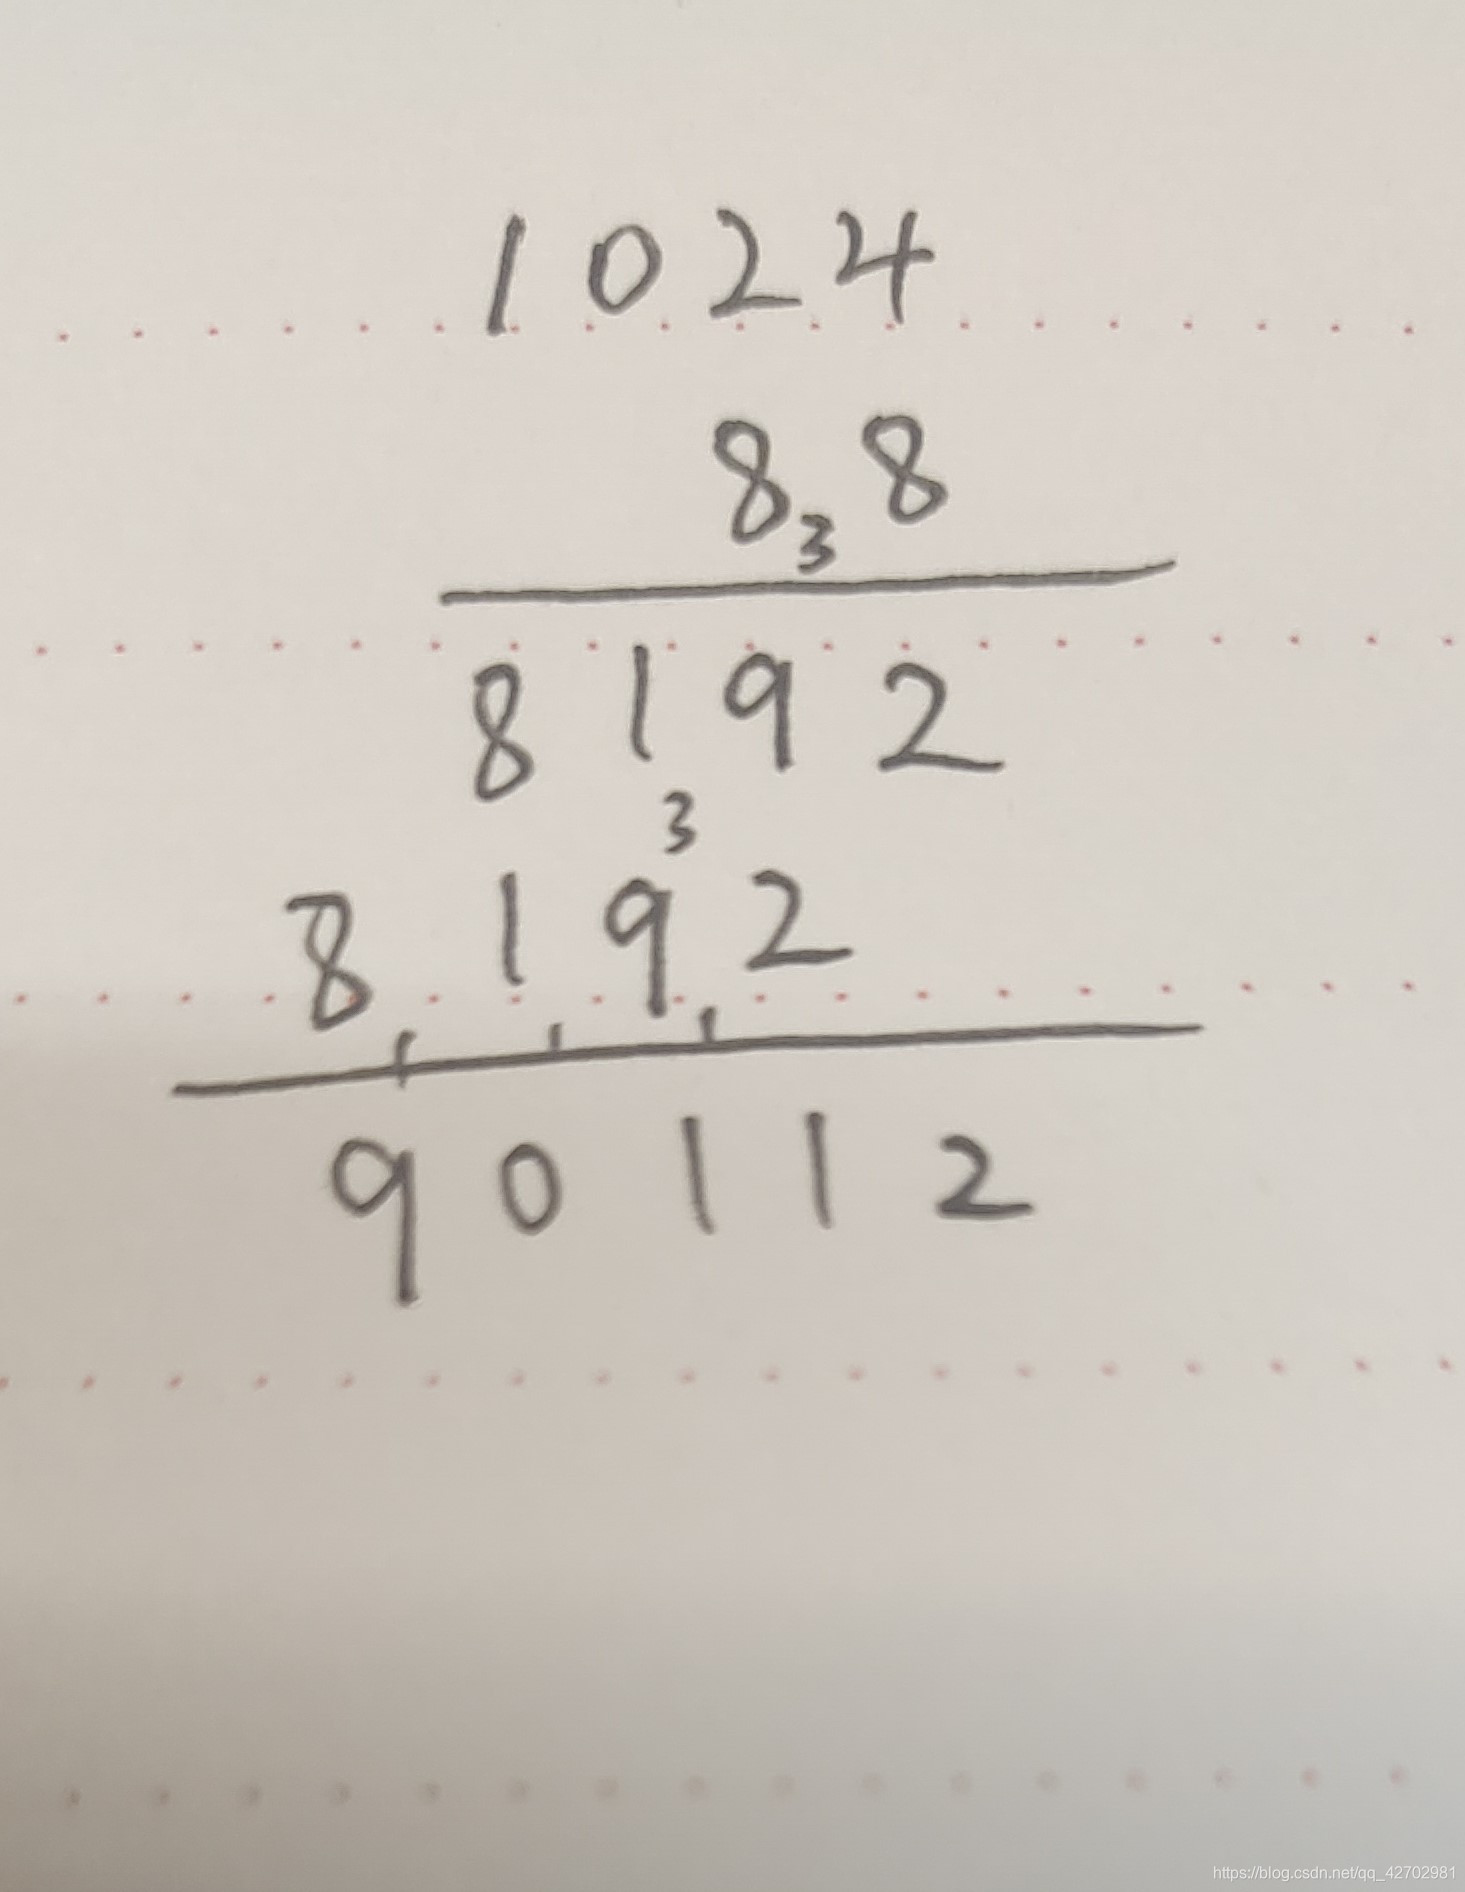 1024
88
3
8192
3
8192
1 1 1
90112
https://blog.csdn.net/qq_42702981